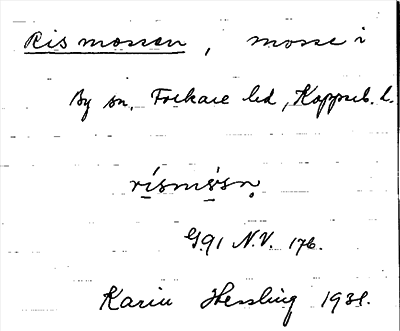 Rismossen, mosse i
By sn, Folkare hd, Kopparb. l.
rísmòsn̥
G.91 N.V. 176.
Karin Hessling 1931.